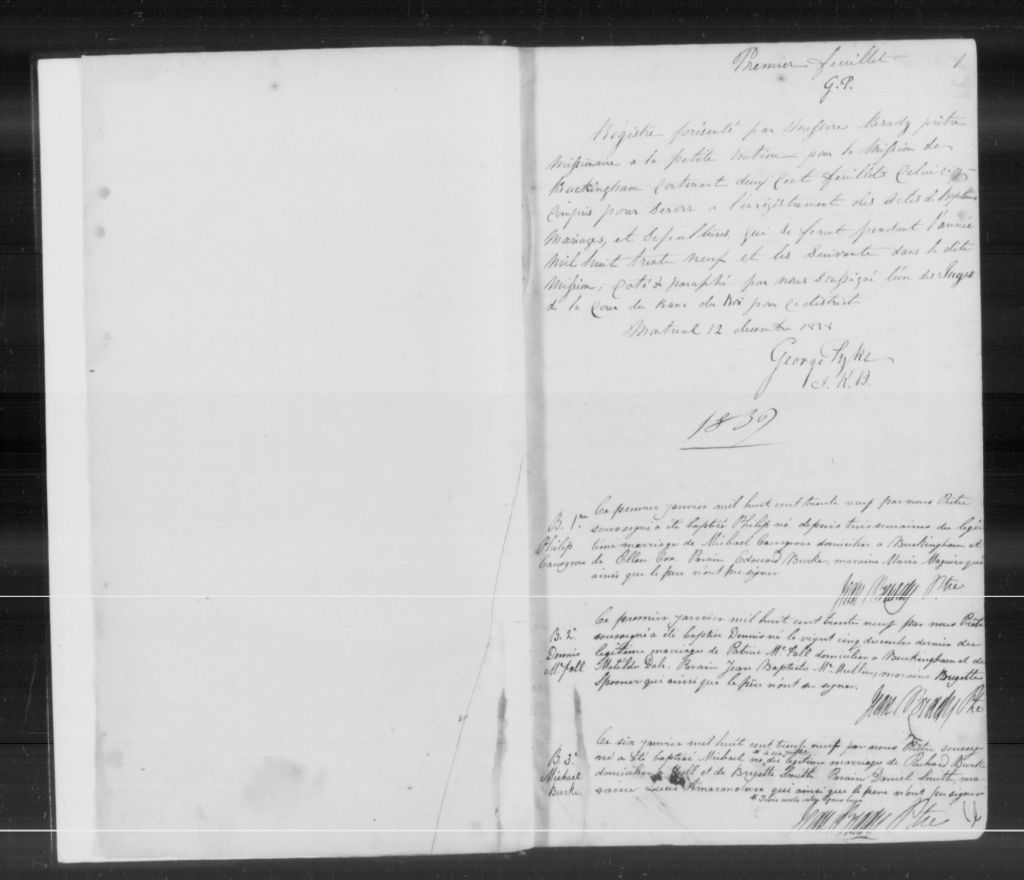 Premier feuillet 1
G.P.
Régistre présenté par Messire Brady prêtre
Missionaire a la petite Nation pour la Mission de
Buckingham Contenant deux Cent feuillets Celui-ci
Compris pour Servir a l'enrégistrement des Actes de Baptêmes
Mariages, et Sepultures, qui se feront pendant l'année
Mil huit trente neuf et les Suivante dans la dite
Mission, Coté & paraphé par nous Soussigné l'un des Juges
de la Cour du Banc du Roi pour ce district
Montreal 12 decembre 1838
George Pyke
J. K. B.
1839
B. 1re
Philip
Causgrove
Ce premier janvier mil huit cent trente neuf par nous Prêtre
soussigné a été baptisé Philip né depuis trois semaines du légi
time marriage de Michael Causgrove domicilier a Buckingham et
de Ellen Cox. Parain Edouard Burke, maraine Marie Maguire qui
ainsi que le père n'ont pu signer
Jean Brady Ptre
B. 2e
Dennis
McFall
Ce premier janvier mil huit cent trente neuf par nous Prêtre
soussigné a été baptisé Dennis né le vingt cinq decembre dernier du
legitime marriage de Patrick McFall domicilier a Buckingham et de
Matilde Dale. Parain Jean Baptiste McMillin, maraine Brigette
Spooner qui ainsi que le père n'ont su signer.
Jean Brady Ptre
B. 3e
Michael
Burke
Ce six janvier mil huit cent trente neuf par nous Prêtre soussig
né a été baptisé Michael né du legitime marriage de Richard Burke
domicilier a Hull et de Brigette Smith. Parain Daniel Smith, ma
raine Lucie qui ainsi que le père n'ont pu signer
Jean Brady Ptre